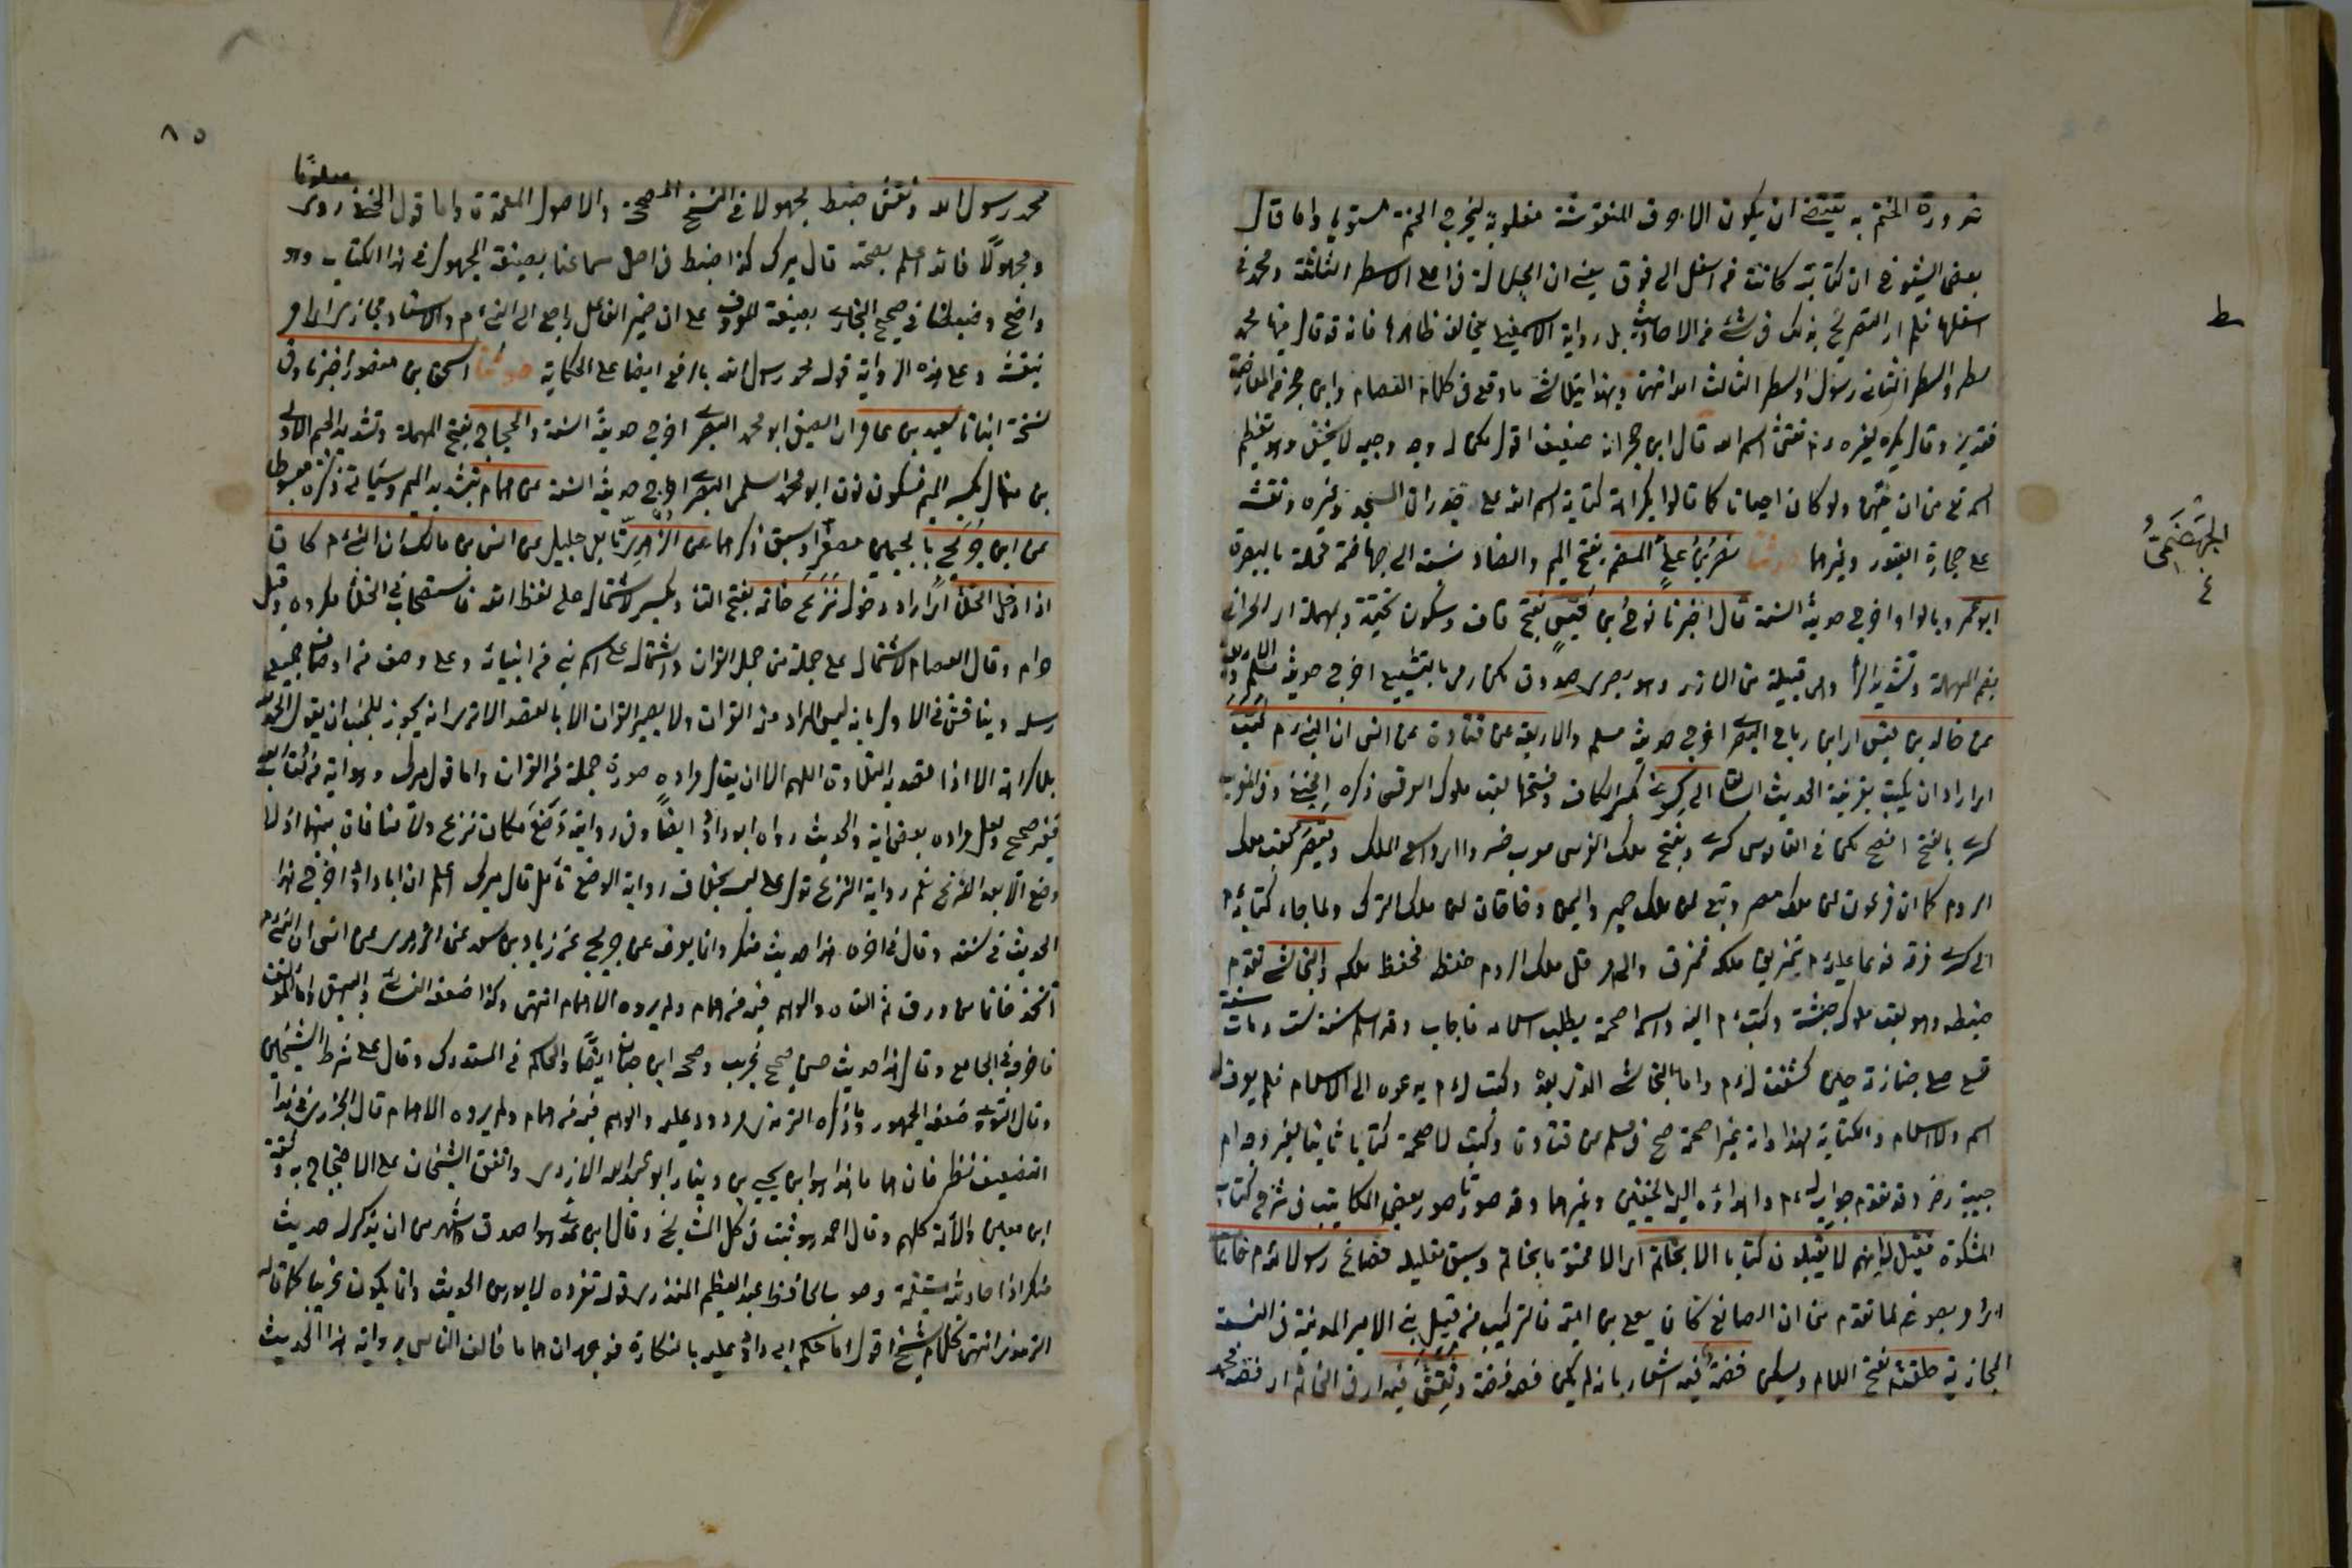 ضرورة الختم به تقتضي ان يكون الاحرف المنقوشة مقلوبة ليخرج الختم مستويا واما قول
بعض الشيوخ ان كتابته كانت من اسفل الى فوق يعني ان الجلالة في اعلى الاسطر الثلاثة ومحمد في
اسفلها فلم ار التصريح بذلك في شئ من الاحاديث بل رواية الاسمعيلي يخالف ظاهرها ذلك فانه قال فيها محمد
سطر والسطر الثاني رسول والسطر الثالث الله انتهى وبهذا يتلاشى ما وقع في كلام العصام وابن حجر من المعارضة
فتدبر وقال يكره لغيره نقش اسم الله قال ابن حجر انه ضعيف اقول لكن له وجه وجيه لا يخفى وهو تعظيم
اسمه تع من ان يمتهن ولو كان احيانا كما قالوا بكراهة كتابة اسم الله على جدران المسجد وغيره ونقشه
على حجارة القبور وغيرها حدثنا نصر بن علي الجهضمي بفتح الجيم والضاد نسبة الى جهاضمة محلة بالبصرة
ابو عمرو بالواو اخرج حديثه الستة قال اخبرنا نوح بن قيس بفتح قاف وسكون تحتية ومهملة اي الحداني
بضم المهملة وتشديد الدال وهي قبيلة من الازد وهو بصري صدوق لكن رمي بالتشيع اخرج حديثه مسلم والاربعة
عن خالد بن قيس اي ابن رباح البصري اخرج حديثه مسلم والاربعة عن قتادة عن انس ان النبي م كتب
اي اراد ان يكتب بقرينة الحديث السابق الى كسرى بكسر الكاف وفتحها لقب ملوك الفرس ذكره الحنفي وفي المغرب
كسرى بالفتح افصح لكن في القاموس كسرى ويفتح ملك الفرس معرب خسرو اي واسع الملك وقيصر لقب ملك
الروم كما ان فرعون لمن ملك مصر وتبع لمن ملك حمير واليمن وخاقان لمن ملك الترك ولما جاء كتابه م
الى كسرى مزقه فدعا عليه م بتمزيق ملكه فمزق والى هرقل ملك الروم حفظه فحفظ ملكه والنجاشي تقدم
ضبطه وهو لقب ملوك الحبشة وكتب م اليه واسمه اصحمة يطلب اسلامه فاجاب وقد اسلم سنة ست ومات سنة
تسع صلى جنازة حين كشفت له م واما النجاشي الذي بعده وكتب له م يدعوه الى الاسلام فلم يعرف له
اسم ولا اسلام والكتابة لهذا وانه غير اصحمة صح في مسلم عن قتادة وكتب لاصحمة كتابا ثانيا ليزوجه ام
حبيبة رض وقد تقدم جوابه له م واهداؤه اليه الخفين وغيرهما وقد صورنا صور بعض المكاتيب في شرح كتاب
المشكوة فقيل له انهم لا يقبلون كتابا الا بخاتم اي الا مختوما بخاتم وسبق تعليله فصاغ رسول الله م خاتما
اي امر بصوغه لما تقدم من ان الصانع كان يعلى بن امية فالتركيب من قبيل بنى الامير المدينة في النسبة
المجازية حلقته بفتح اللام ويسكن فضة فيه اشعار بانه لم يكن فصه فضة ونقش فيه اي في الخاتم اي فصه محمد
ط
الجَهْضَمِيُّ
٨٥
محمد رسول الله ونقش ضبط مجهولا في النسخ المصححة والاصول المعتمدة واما قول الحنفي روي معلومًا
ومجهولاً فالله اعلم بصحته قال ميرك كذا ضبط في اصل سماعنا بصيغة المجهول في هذا الكتاب وهو
واضح وضبطناه في صحيح البخاري بصيغة المعروف على ان ضمير الفاعل راجع الى النبي م والاسناد مجازي اي امر
بنقشه وعلى هذه الرواية قوله محمد رسول الله بالرفع ايضا على الحكاية حدثنا اسحق بن منصور اخبرنا وفي
نسخة انبانا سعيد بن عامر اي الضبعي ابو محمد البصري اخرج حديثه الستة والحجاج بفتح المهملة وتشديد الجيم الاولى
بن منهال بكسر الميم فسكون نون ابو محمد السلمي البصري اخرج حديثه الستة عن همام بتشديد الميم وسياتي ذكره مبسوطا
عن ابن جريج بالجيمين مصغرا وسبق ذكرهما عن الزهري تابعي جليل عن انس بن مالك ان النبي م كان
اذا دخل الخلاء اي اراد دخوله نزع خاتمه بفتح التاء ويكسر لاشتماله على لفظ الله فاستصحابه في الخلاء مكروه وقيل
حرام وقال العصام لاشتماله على جملة من جمل القران واشتماله على اسم نبي من انبيائه وعلى وصف من اوصاف جميع
رسله ويناقش في الاول بانه ليس المراد منه القران ولا يصير القران الا بالقصد الا ترى انه يجوز للجنب ان يقول الحمد لله
بلا كراهة الا اذا قصد به التلاوة اللهم الا ان يقال مراده صورة جملة من القران واما قول ميرك
فغير صحيح ولعل مراده بعض اية والحديث رواه ابو داود ايضًا وفي رواية وَضَعَ مكان نزع ولا منافاة بينهما اذ لا
وضع الا بعد النزع نعم رواية النزع تدل على لبسه بخلاف رواية الوضع تأمل قال ميرك اعلم ان ابا داود اخرج هذا
الحديث في سننه وقال في اخره هذا حديث منكر وانما يعرف عن ابن جريج عن زياد بن سعد عن الزهري عن انس ان النبي م
اتخذ خاتما من ورق ثم القاه والوهم فيه من همام ولم يروه الا همام انتهى وكذا ضعفه النسائي والبيهقي واما المؤلف
فاخرجه في الجامع وقال هذا حديث حسن صحيح غريب وصححه ابن حبان ايضًا والحاكم في المستدرك وقال على شرط الشيخين
وقال النووي ضعفه الجمهور وما ذكره الترمذي مردود عليه والوهم فيه من همام ولم يروه الا همام قال الجزري في هذا
التضعيف نظر فان هماما هذا هو ابن يحيى بن دينار ابو عبد الله الازدي واتفق الشيخان على الاحتجاج به وثقه
ابن معين والائمة كلهم وقال احمد هو ثبت في كل المشايخ وقال ابن عدي هو اصدق واشهر من ان يذكر له حديث
منكر اذ احاديثه مستقيمة وصوب الحافظ عبد العظيم المنذري قوله تفرده لا يوهن الحديث وانما يكون غريبا كما قاله
الترمذي انتهى كلام الشيخ اقول اما حكم ابي داود عليه بالنكارة فوجهه ان هماما خالف الناس برواية هذا الحديث